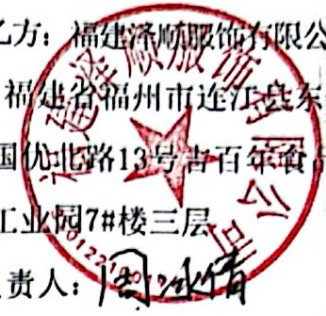 乙方：福建泽顺服饰有限公
福建省福州市连江县东
国优北路13号吉百年食品
工业园7#楼三层
责人：周冰倩
福建泽顺服饰有限公司